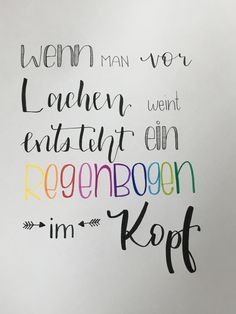 wenn MAN vor
Lachen weint
entsteht ein
RegenBogen
im Kopf